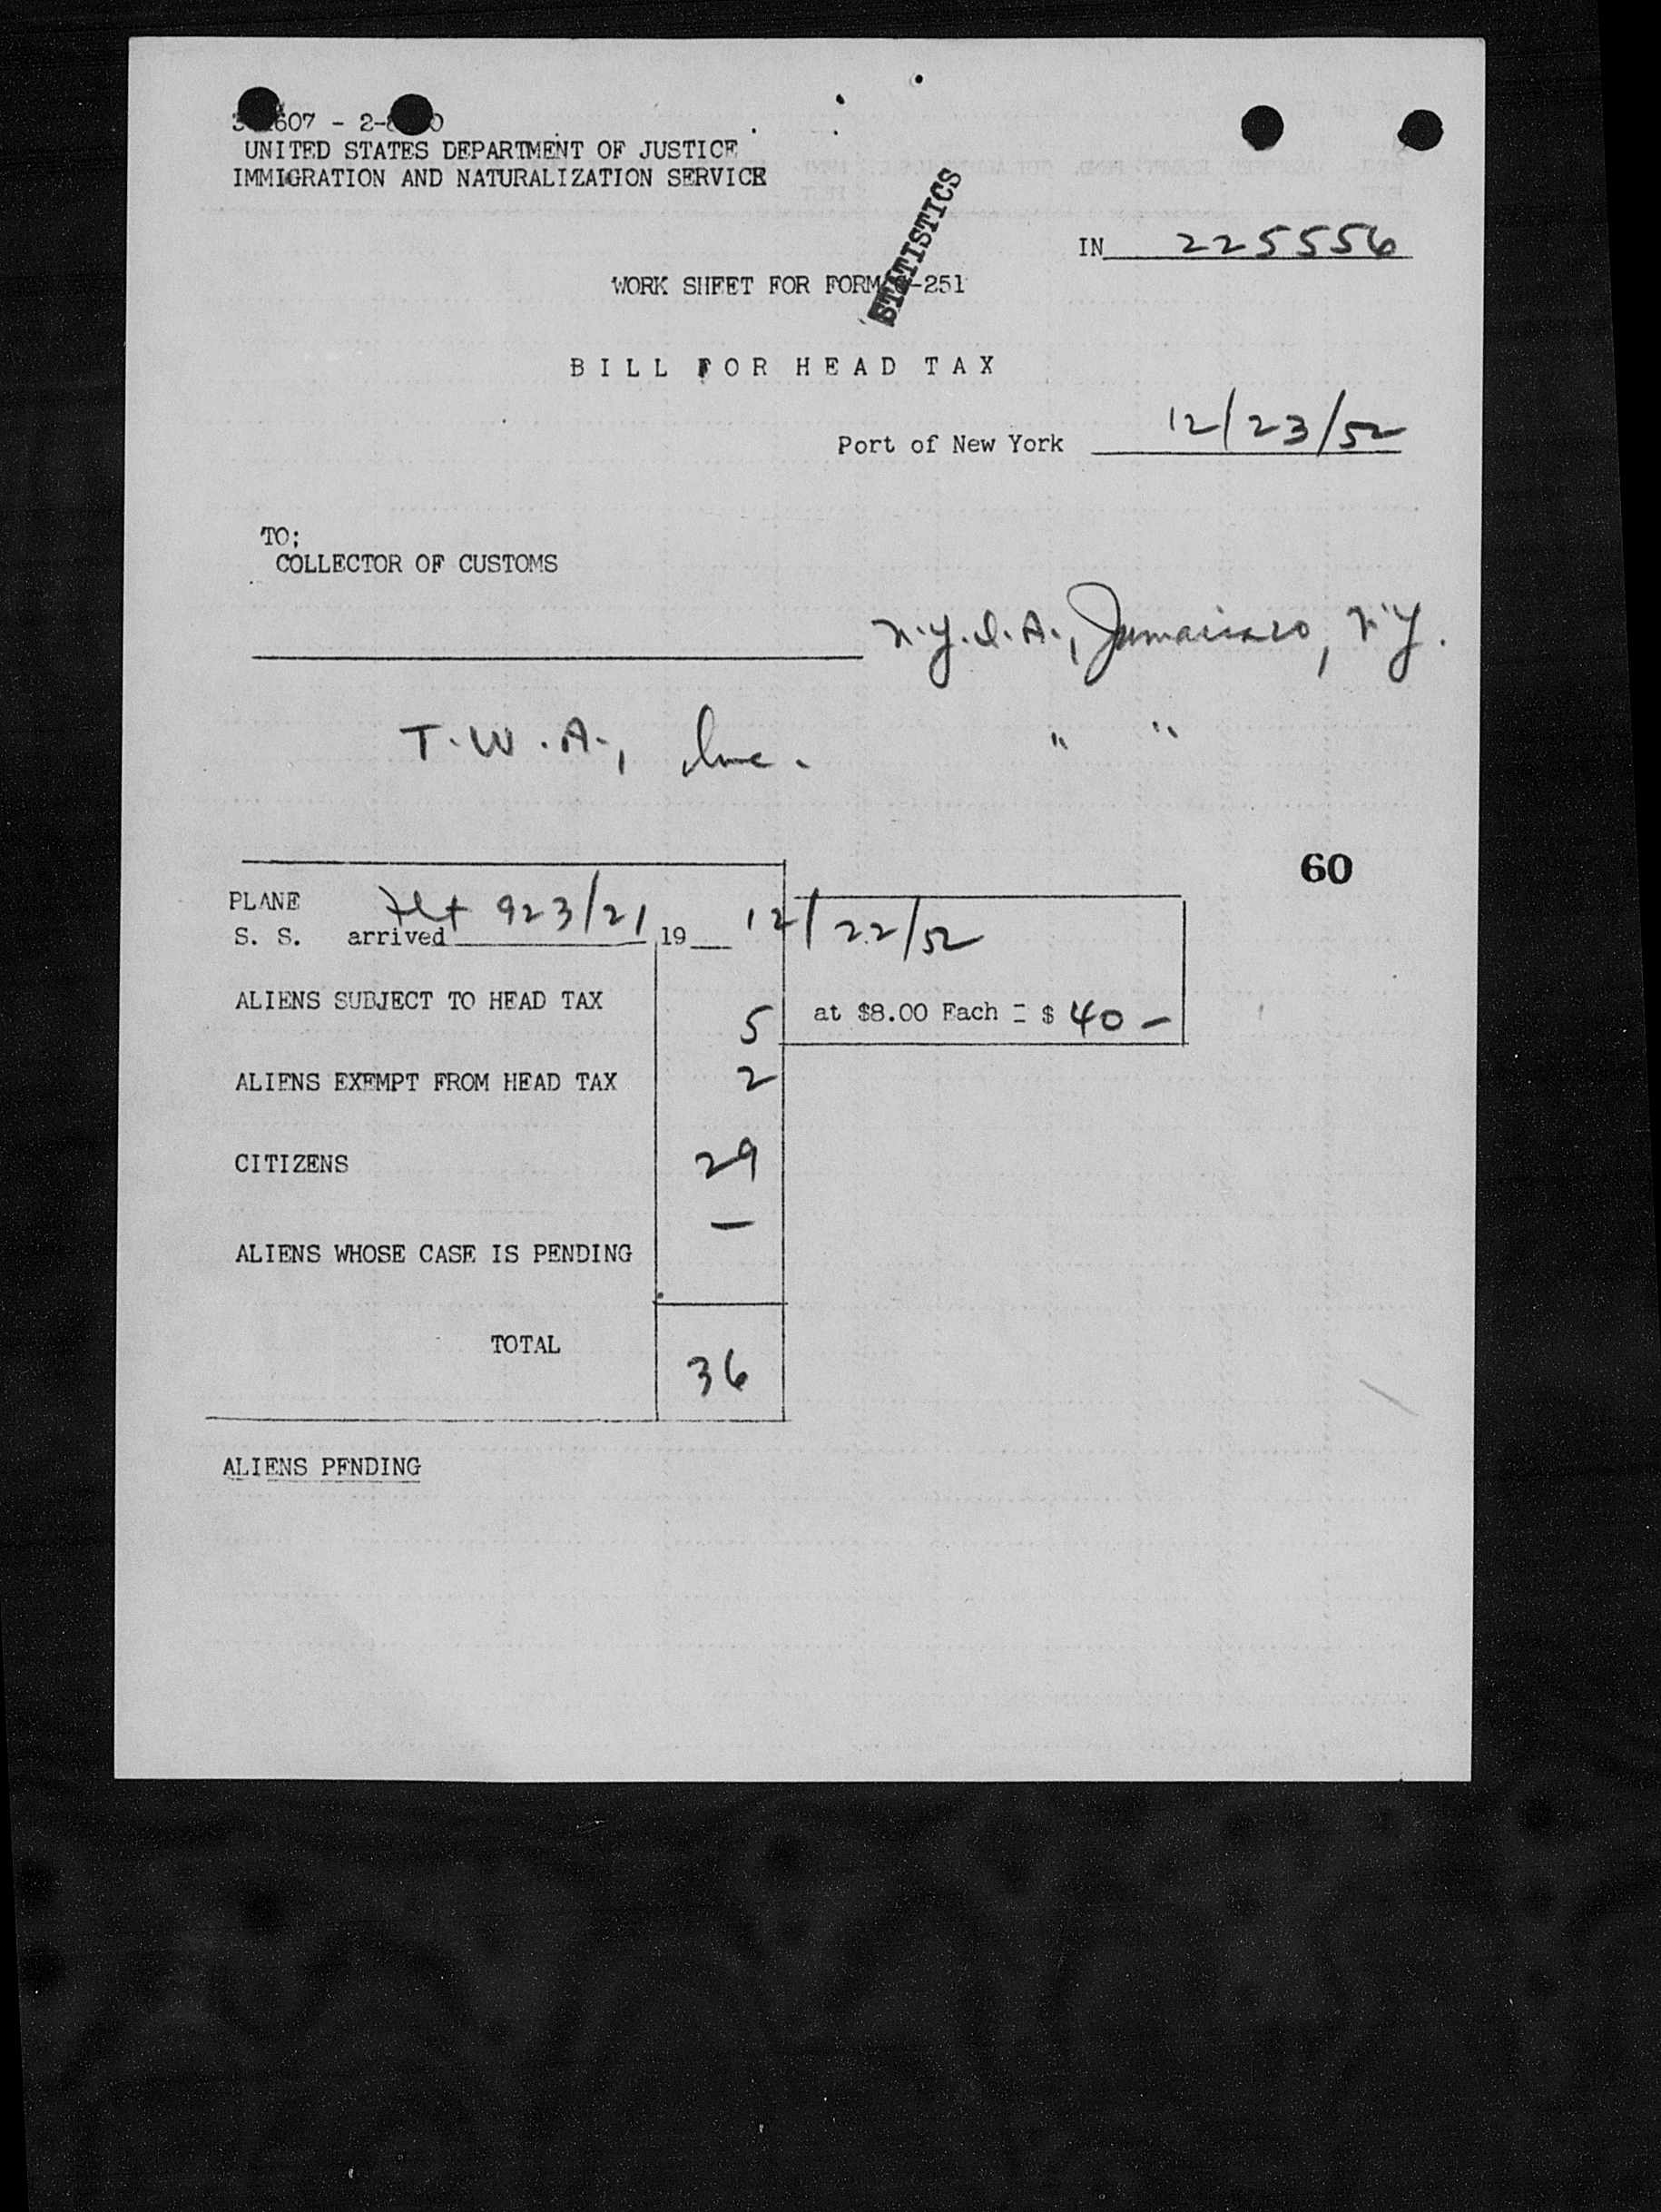 607 - 2-
UNITED STATES DEPARTMENT OF JUSTICE
IMMIGRATION AND NATURALIZATION SERVICE
STATISTICS
IN 225556
WORK SHEET FOR FORM -251
BILL FOR HEAD TAX
Port of New York 12/23/52
TO:
COLLECTOR OF CUSTOMS
N.Y.I.A., N.Y.
T.W.A., Inc. " "
60
PLANE
S. S. arrived Flt 923/21 19 12/22/52
ALIENS SUBJECT TO HEAD TAX 5 at $8.00 Each = $ 40 -
ALIENS EXEMPT FROM HEAD TAX 2
CITIZENS 29
ALIENS WHOSE CASE IS PENDING —
TOTAL 36
ALIENS PENDING